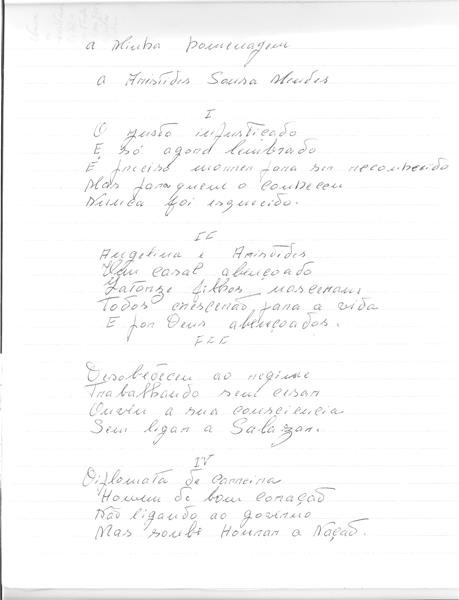 A Minha homenagem
a Aristides Sousa Mendes
I
O justo injustiçado
E só agora lembrado
É preciso morrer para ser reconhecido
Mas para quem o conheceu
Nunca foi esquecido.
II
Angelina e Aristides
Um casal abençoado
Catorze filhos nasceram
Todos cresceram para a vida
E por Deus abençoados.
III
Desobedeceu ao regime
Trabalhando sem cessar
Ouviu a sua consciencia
Sem ligar a Salazar.
IV
Diplomata de carreira
Homem de bom coração
Não ligando ao governo
Mas soube Honrar a Nação.